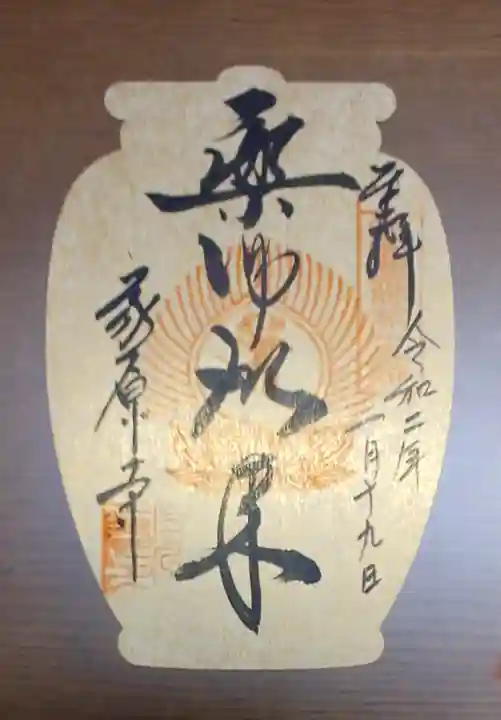 奉拝
令和二年
一月十九日
薬師如来
家原寺